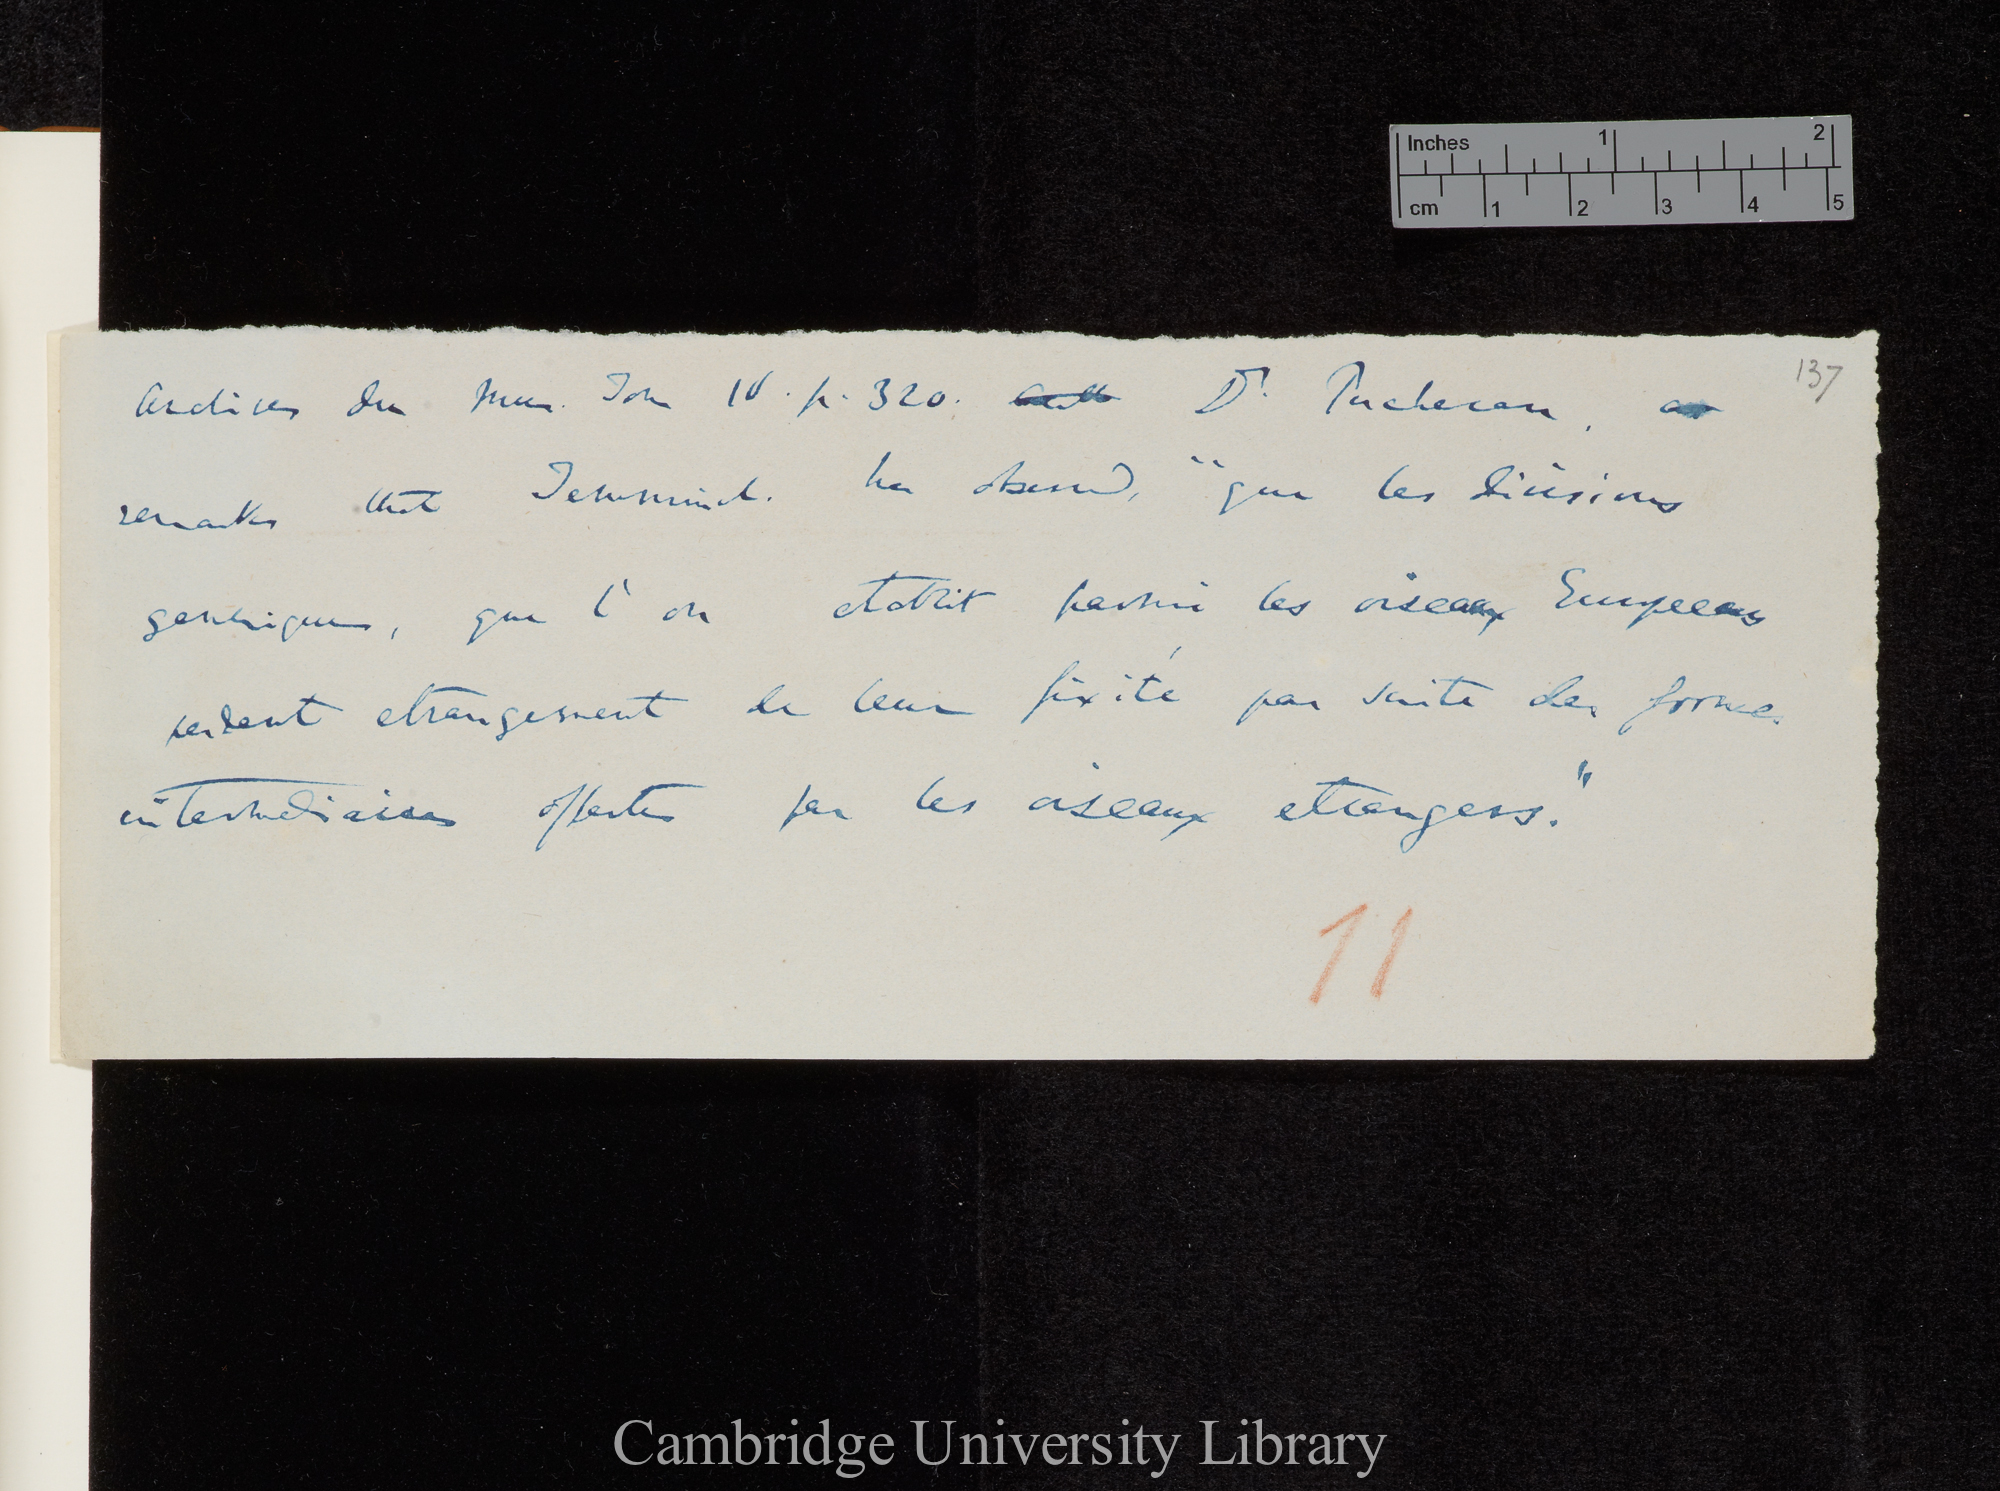 Inches 1 2
cm 1 2 3 4 5
137
Archives du Mus. Tom IV. p. 320. Dr. Pucheran,
remarks that Temminck. has observed, "que les divisions
generiques, que l'on etablit parmi les oiseaux Europeens
perdent etrangement de leur fixité par suite des formes
intermediaires offertes par les oiseaux etrangers."
11
Cambridge University Library